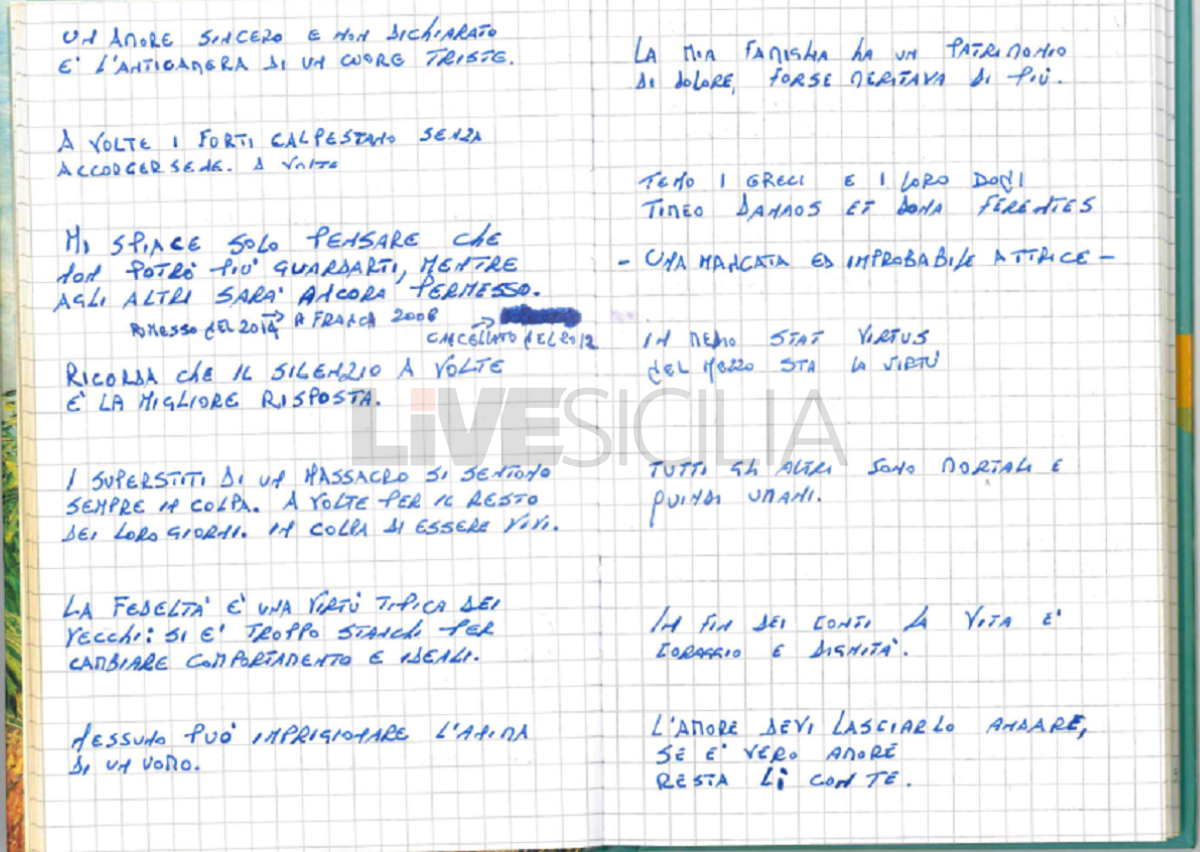 UN AMORE SINCERO E NON DICHIARATO
E' L'ANTICAMERA DI UN CUORE TRISTE.
A VOLTE I FORTI CALPESTANO SENZA
ACCORGERSENE. A VOLTE
MI SPIACE SOLO PENSARE CHE
NON POTRÒ PIÙ GUARDARTI, MENTRE
AGLI ALTRI SARA' ANCORA PERMESSO.
ROMESSO DEL 2014 → A FRANCA 2008
→ CANCELLATO DEL 2012
RICORDA CHE IL SILENZIO A VOLTE
E' LA MIGLIORE RISPOSTA.
I SUPERSTITI DI UN MASSACRO SI SENTONO
SEMPRE IN COLPA. A VOLTE PER IL RESTO
DEI LORO GIORNI. IN COLPA DI ESSERE VIVI.
LA FEDELTA' E' UNA VIRTÙ TIPICA DEI
VECCHI: SI E' TROPPO STANCHI PER
CAMBIARE COMPORTAMENTO E IDEALI.
NESSUNO PUO' IMPRIGIONARE L'ANIMA
DI UN UOMO.
LA MIA FAMIGLIA HA UN PATRIMONIO
DI DOLORE, FORSE MERITAVA DI PIÙ.
TEMO I GRECI E I LORO DONI
TIMEO DANAOS ET DONA FERENTES
- UNA MANCATA ED IMPROBABILE ATTRICE -
IN MEDIO STAT VIRTUS
NEL MEZZO STA LA VIRTÙ
TUTTI GLI ALTRI SONO MORTALI E
QUINDI UMANI.
IN FIN DEI CONTI LA VITA E'
CORAGGIO E DIGNITA'.
L'AMORE DEVI LASCIARLO ANDARE,
SE E' VERO AMORE
RESTA LÌ CON TE.
LIVESICILIA